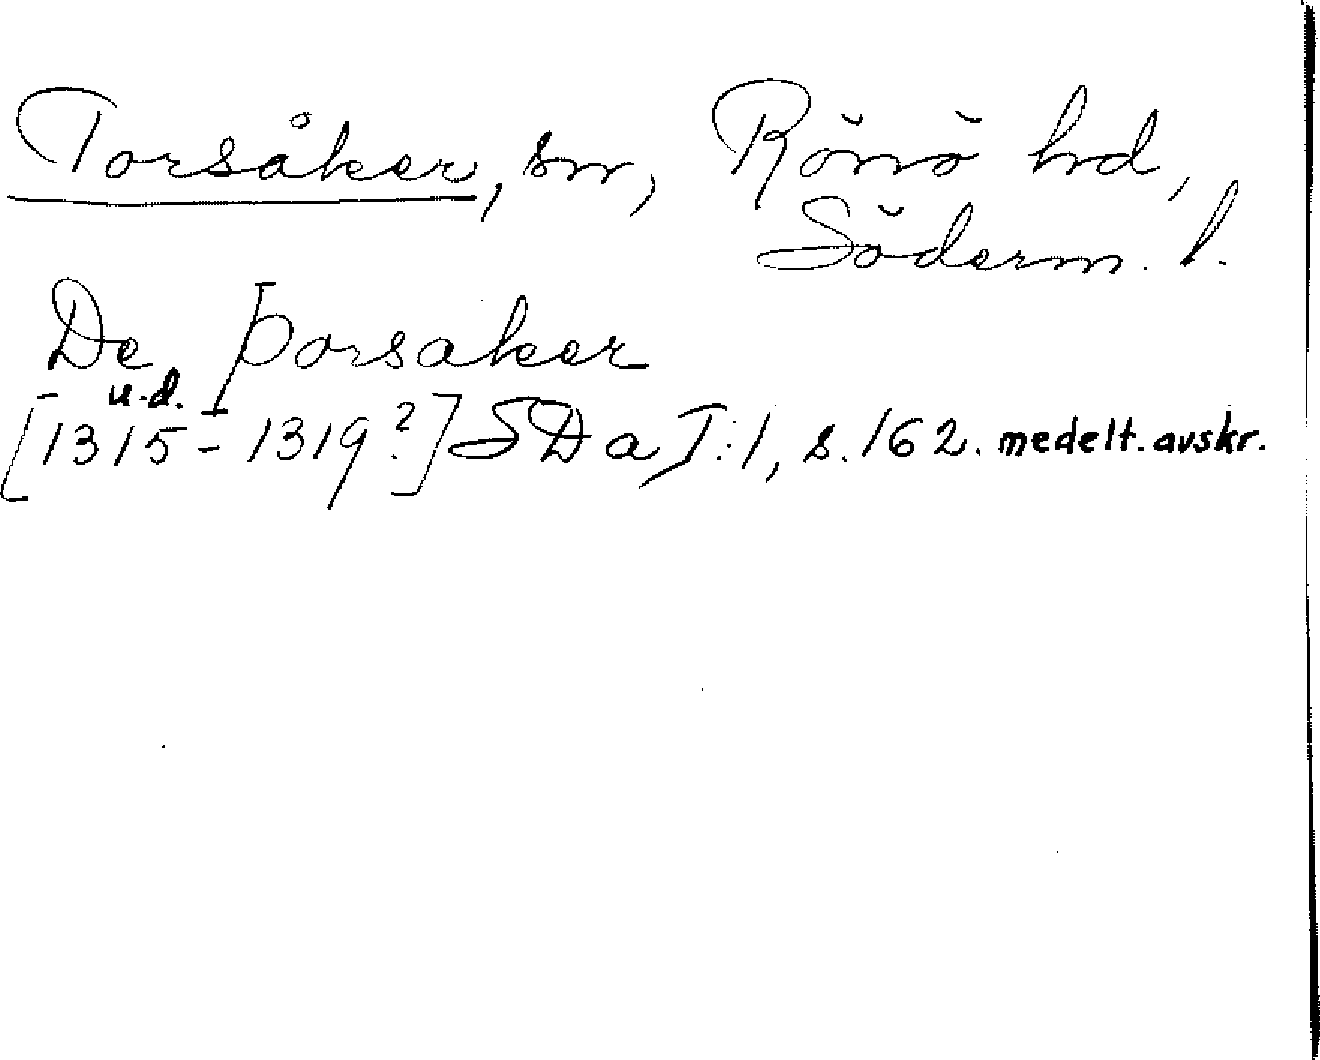 Torsåker, sn, Rönö hd,
Söderm. l.
De Þorsaker
u.d.
[1315-1319?] SDa I:1, s. 162. medelt. avskr.